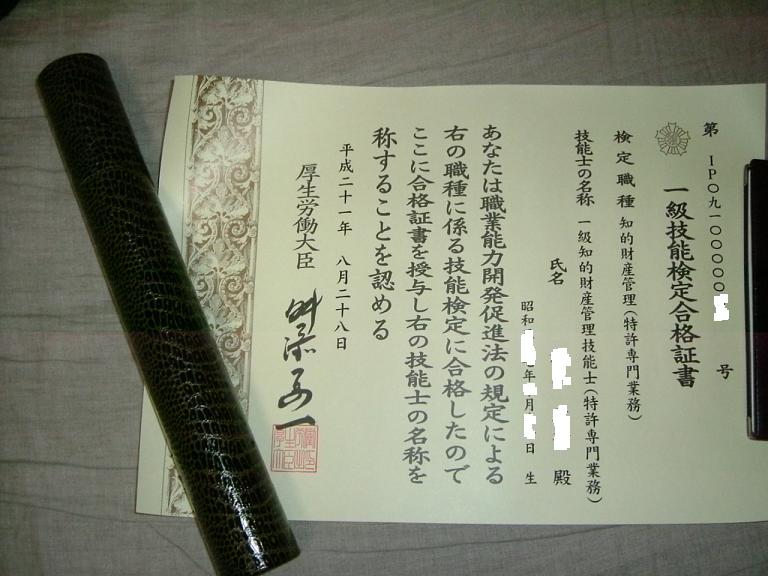 第 IP〇九一〇〇〇〇〇 号
一級技能検定合格証書
検定職種 知的財産管理(特許専門業務)
技能士の名称 一級知的財産管理技能士(特許専門業務)
氏名 殿
昭和 年 月 日 生
あなたは職業能力開発促進法の規定による
右の職種に係る技能検定に合格したので
ここに合格証書を授与し右の技能士の名称を
称することを認める
平成二十一年 八月二十八日
厚生労働大臣 舛添要一